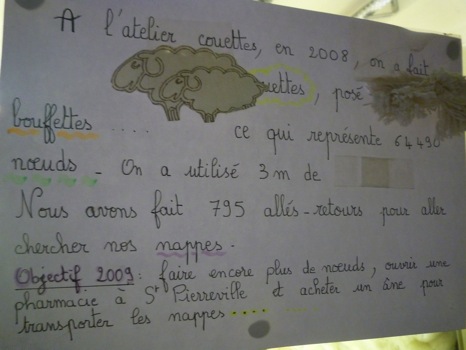 A l'atelier couettes, en 2008, on a fait
uettes, posé
bouffettes .... ce qui représente 64 490
nœuds - On a utilisé 3 m de
Nous avons fait 795 allés-retours pour aller
chercher nos nappes.
Objectif 2009 : faire encore plus de nœuds, ouvrir une
pharmacie à St Pierreville et acheter un âne pour
transporter les nappes ....